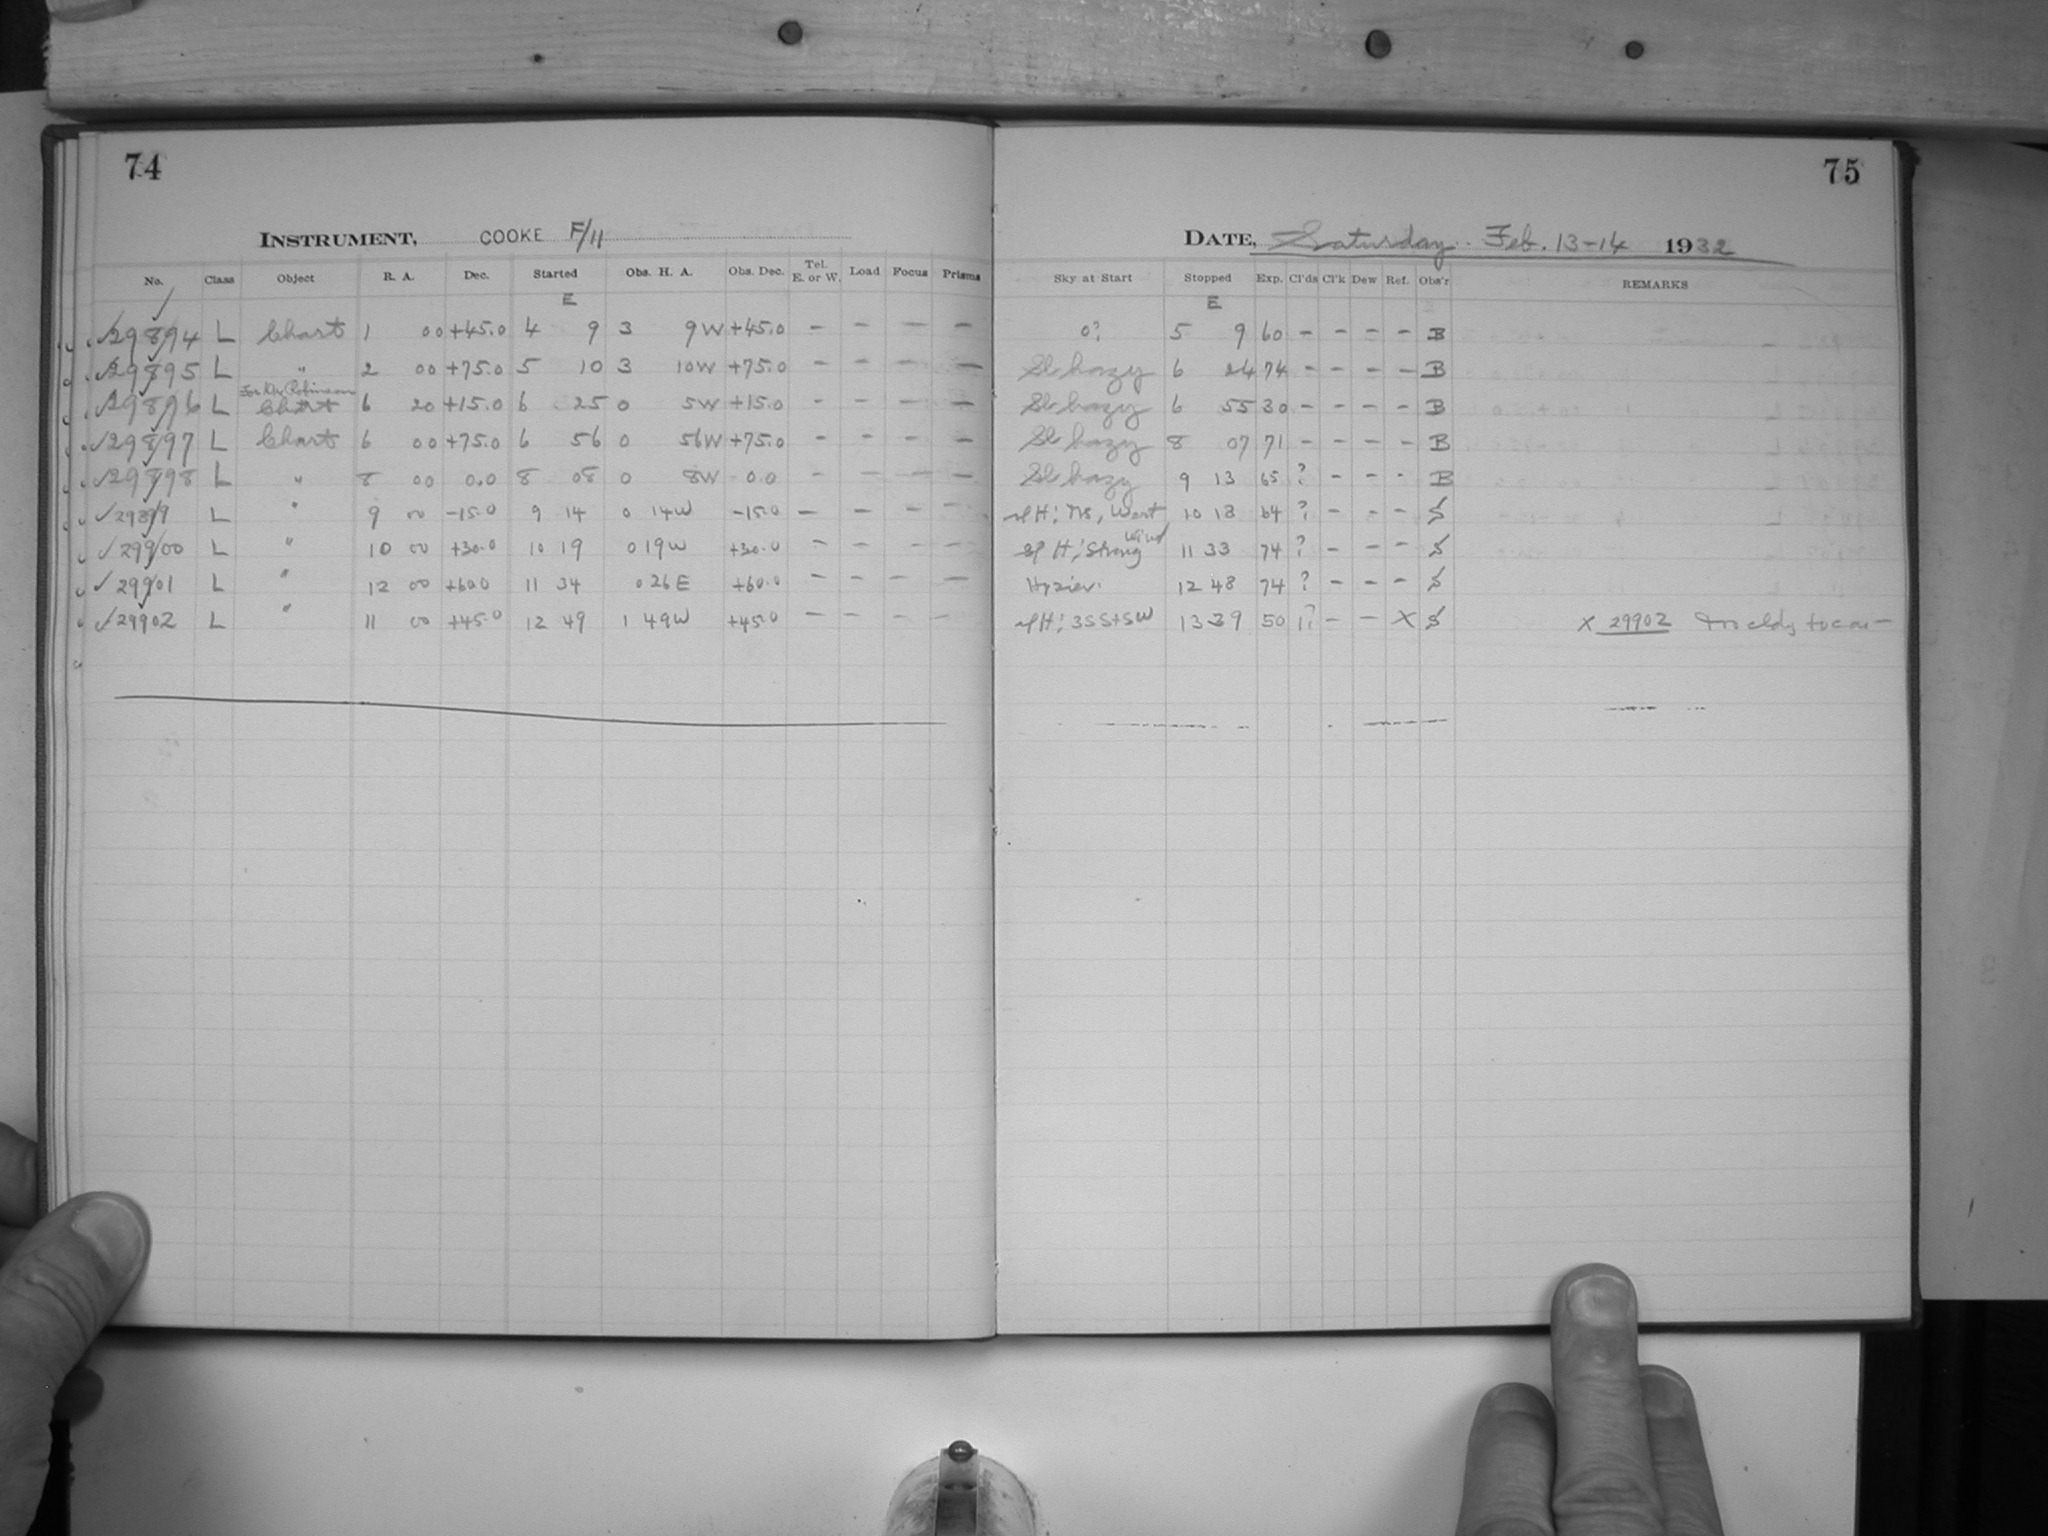 74
INSTRUMENT, COOKE F/11
No. Class Object R. A. Dec. Started Obs. H. A. Obs. Dec. Tel. E. or W. Load Focus Prisms
E
29894 L Chart 1 00 +45.0 4 9 3 9W +45.0 - - - -
29895 L " 2 00 +75.0 5 10 3 10W +75.0 - - - -
For Dr. Robinson
29896 L Chart 6 20 +15.0 6 25 0 5W +15.0 - - - -
29897 L Chart 6 00 +75.0 6 56 0 56W +75.0 - - - -
29898 L " 8 00 0.0 8 08 0 8W 0.0 - - - -
29899 L " 9 00 -15.0 9 14 0 14W -15.0 - - - -
29900 L " 10 00 +30.0 10 19 0 19W +30.0 - - - -
29901 L " 12 00 +60.0 11 34 0 26E +60.0 - - - -
29902 L " 11 00 +45.0 12 49 1 49W +45.0 - - - -
75
DATE, Saturday Feb. 13-14 1932
Sky at Start Stopped Exp. Cl'ds Cl'k Dew Ref. Obs'r REMARKS
E
0? 5 9 60 - - - - B
Sl. hazy 6 24 74 - - - - B
Sl. hazy 6 55 30 - - - - B
Sl. hazy 8 07 71 - - - - B
Sl. hazy 9 13 65 ? - - - B
10 18 64 ? - - -
Strong Wind 11 33 74 ? - - -
Hazier. 12 48 74 ? - - -
13 39 50 - - X X 29902